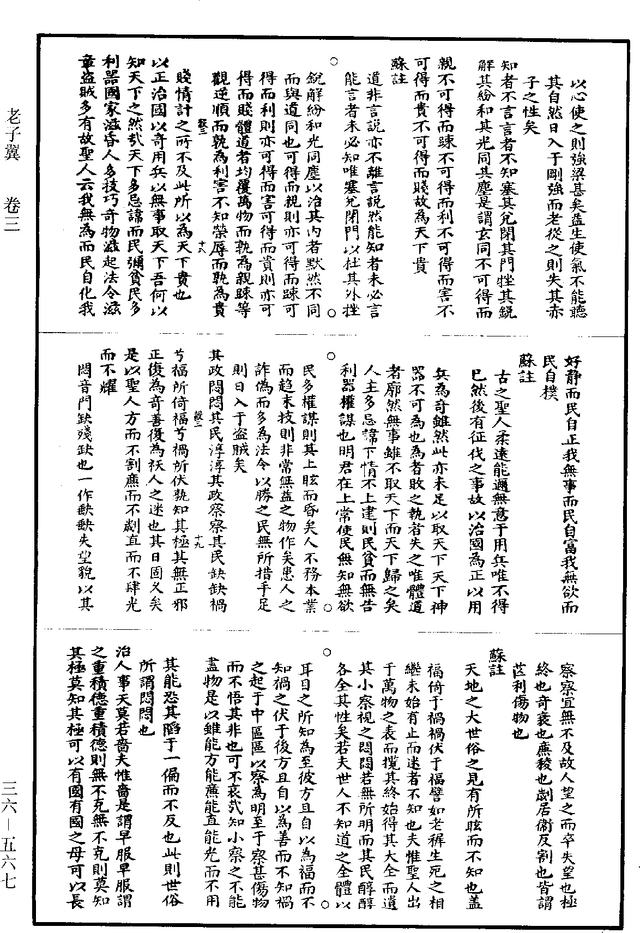 老子翼 卷三
三六—五六七
以心使之則強梁甚矣益生使氣不能聽
其自然日入于剛強而老從之則失其赤
子之性矣
知者不言言者不知塞其兌閉其門挫其銳
解其紛和其光同其塵是謂玄同不可得而
親不可得而踈不可得而利不可得而害不
可得而貴不可得而賤故為天下貴
蘇註
道非言說亦不離言說然能知者未必言
能言者未必知唯塞兌閉門以杜其外挫
銳解紛和光同塵以治其內者默然不同
而與道同也可得而親則亦可得而踈可
得而利則亦可得而害可得而貴則亦可
得而賤體道者均覆萬物而孰為親踈等
觀逆順而孰為利害不知榮辱而孰為貴
賤情計之所不及此所以為天下貴也
以正治國以奇用兵以無事取天下吾何以
知天下之然哉天下多忌諱而民彌貧民多
利器國家滋昏人多技巧奇物滋起法令滋
章盜賊多有故聖人云我無為而民自化我
好靜而民自正我無事而民自富我無欲而
民自樸
蘇註
古之聖人柔遠能邇無意于用兵唯不得
已然後有征伐之事故以治國為正以用
兵為奇雖然此亦未足以取天下天下神
器不可為也為者敗之執者失之唯體道
者廓然無事雖不取天下而天下歸之矣
人主多忌諱下情不上達則民貧而無告
利器權謀也明君在上常使民無知無欲
民多權謀則其上眩而昏矣人不務本業
而趨末技則非常無益之物作矣患人之
詐偽而多為法令以勝之民無所措手足
則日入于盜賊矣
其政悶悶其民淳淳其政察察其民缺缺禍
兮福所倚福兮禍所伏孰知其極其無正邪
正復為奇善復為祅人之迷也其日固久矣
是以聖人方而不割廉而不劌直而不肆光
而不耀
悶音門缺殘缺也一作缺缺失望貌以其
察察宜無不及故人望之而卒失望也極
終也奇衺也廉稜也劌居衛反割也皆謂
芒利傷物也
蘇註
天地之大世俗之見有所眩而不知也蓋
福倚于禍禍伏于福譬如老稺生死之相
繼未始有止而迷者不知也夫惟聖人出
于萬物之表而攬其終始得其大全而遺
其小察視之悶悶若無所明而其民醇醇
各全其性矣若夫世人不知道之全體以
耳目之所知為至彼方且自以為福而不
知禍之伏于後方且自以為善而不知禍
之起于中區區以察為明至于察甚傷物
而不悟其非也可不哀哉知小察之不能
盡物是以雖能方能廉能直能光而不用
其能恐其陷于一偏而不反也此則世俗
所謂悶悶也
治人事天莫若嗇夫惟嗇是謂早服早服謂
之重積德重積德則無不克無不克則莫知
其極莫知其極可以有國有國之母可以長